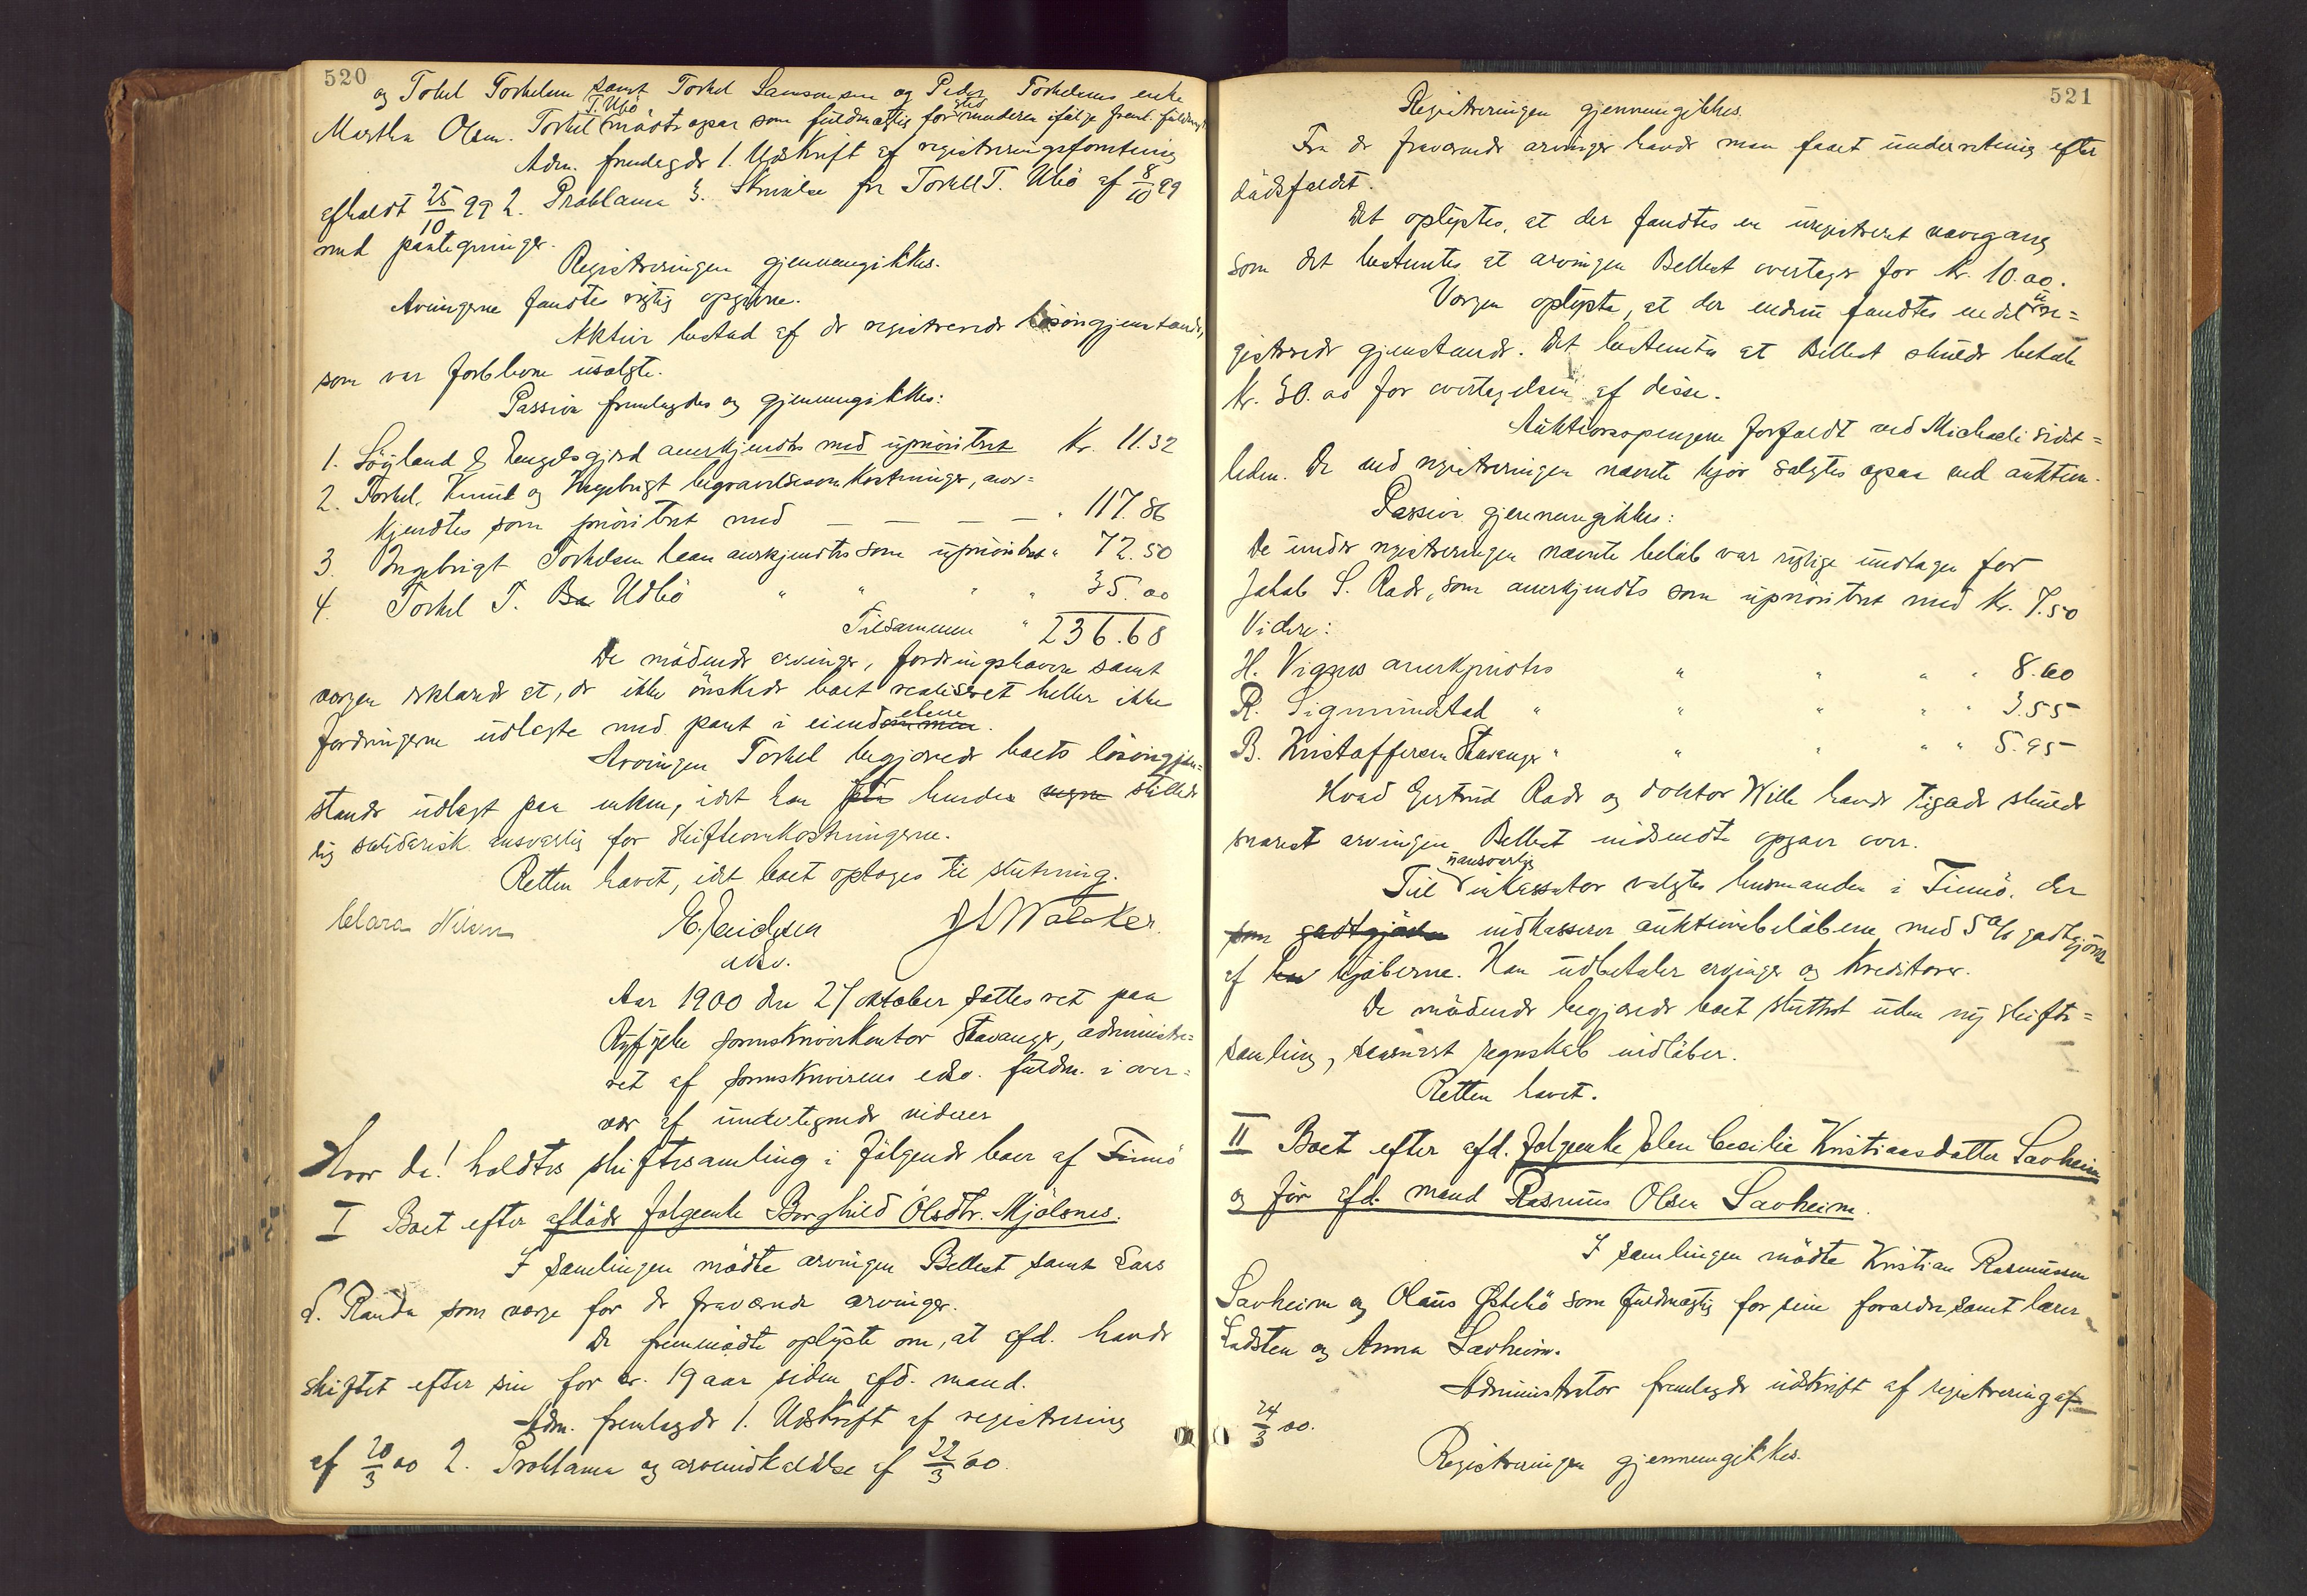 520
og Tokel Torkelsen samt Torkel Samsonsen og Peder Torkelsens enke
Martha Olsen. Torkel T. Ubö mödte ogsaa som fuldmægtig for ifølge freml. fuldmagt
Adm. fremlagde 1. Udskrift af registreringsforretning
afholdt 25/10 99 2. Proklama 3. Skrivelse fra Torkel T. Ubö af 8/10 99
med paategninger.
Registreringen gjennemgikkes.
Arvingerne fandtes rigtig opgivne.
Aktiva bestod af de registrerede lösöregjenstande,
som var forblevne usolgte.
Passiva fremlagdes og gjennemgikkes:
1. Söyland & Hengelsgjerd anerkjendtes med uprioritert Kr. 11.32
2. Torkel, Knut og Ingebrigt begravelsesomkostninger, aner=
kjendtes som prioritert med — — — — " 117.86
3. Ingebrigt Torkelsen laan anerkjendtes som uprioritert " 72.50
4. Torkel T. Ba Udbö " " " " 35.00
Tilsammen " 236.68
De mödende arvinger, fordringshavere samt
vergen erklærede at, de ikke önskede boet realiseret heller ikke
fordringerne udlagte med pant i eiendelene.
Arvingen Torkel begjærede boets lösöregjen=
stande udlagt paa enken, idet han hendes stillede
sig solidarisk ansvarlig for skifteomkostningerne.
Retten hævet, idet boet optages til slutning.
Clara Nilsen
edsv.
Aar 1900 den 27 oktober sattes ret paa
Ryfylke sorenskriverkontor Stavanger, administre=
ret af sorenskriverens edsv. fuldm. i over=
vær af undertegnede vidner
Hvor da! holdtes skiftesamling i følgende boer af Finnö
I Boet efter afdöde folgeenke Borghild Olsdtr. Mjölsnes.
I samlingen mödte arvingen Bellest samt Lars
S. Rauda som verge for de fraværende arvinger.
De fremmödte oplyste om, at afd. havde
skiftet efter sin for ca. 19 aar siden afd. mand.
Adm. fremlagde 1. Udskrift af registrering
af 20/3 00 2. Proklama og arveindkaldelse af 22/3 00.
521
Registreringen gjennemgikkes.
Fra de fraværende arvinger havde man faaet underretning efter
dödsfaldet.
Det oplystes, at der fandtes en uregistreret
som det bestemtes at arvingen Bellest overtager for kr. 10.00.
Vergen oplyste, at der endnu fandtes endel ure=
gistrerede gjenstande. Det bestemtes at Bellest skulde betale
kr. 30.00 for overtagelsen af disse.
Auktionspengene forfaldt ved Michaeli sidst=
leden. De ved registreringen nævnte kjör solgtes ogsaa ved auktion.
Passiva gjennemgikkes:
De under registreringen nævnte belöb var rigtige undtagen for
Jakob S. Rade, som anerkjendtes som uprioritert med Kr. 7.50
Videre:
H. Vignes anerkjendtes " " " " 8.00
R. Sigmundstad " " " " " 3.55
B. Kristoffersen Stavanger " " " " " 5.95
Hvad Gjertrud Rade og doktor Wille havde tilgode skulde
snarest arvingen Bellest indsendte opgave over.
Til uansvarlig inkassator valgtes lensmanden i Finnö. der
som godtgjörelse indkasserer auktionsbelöbene med 5 % godtgjörelse
af kjöberne. Han udbetaler arvinger og kreditorer.
De mödende begjærede boet sluttet uden ny skifte=
samling, saasnart regnskab indlöber.
Retten hævet.
II Boet efter afd. folgeenke Elen Cecilie Kristiansdatter Savheim
og för afd. mand Rasmus Olsen Savheim.
I samlingen mödte Kristian Rasmussen
Savheim og Olaus Östebö som fuldmægtig for sine foreldre samt lærer
Ladsten og Anna Savheim.
Administrator fremlagde udskrift af registrering af
24/3 00.
Registreringen gjennemgikkes.